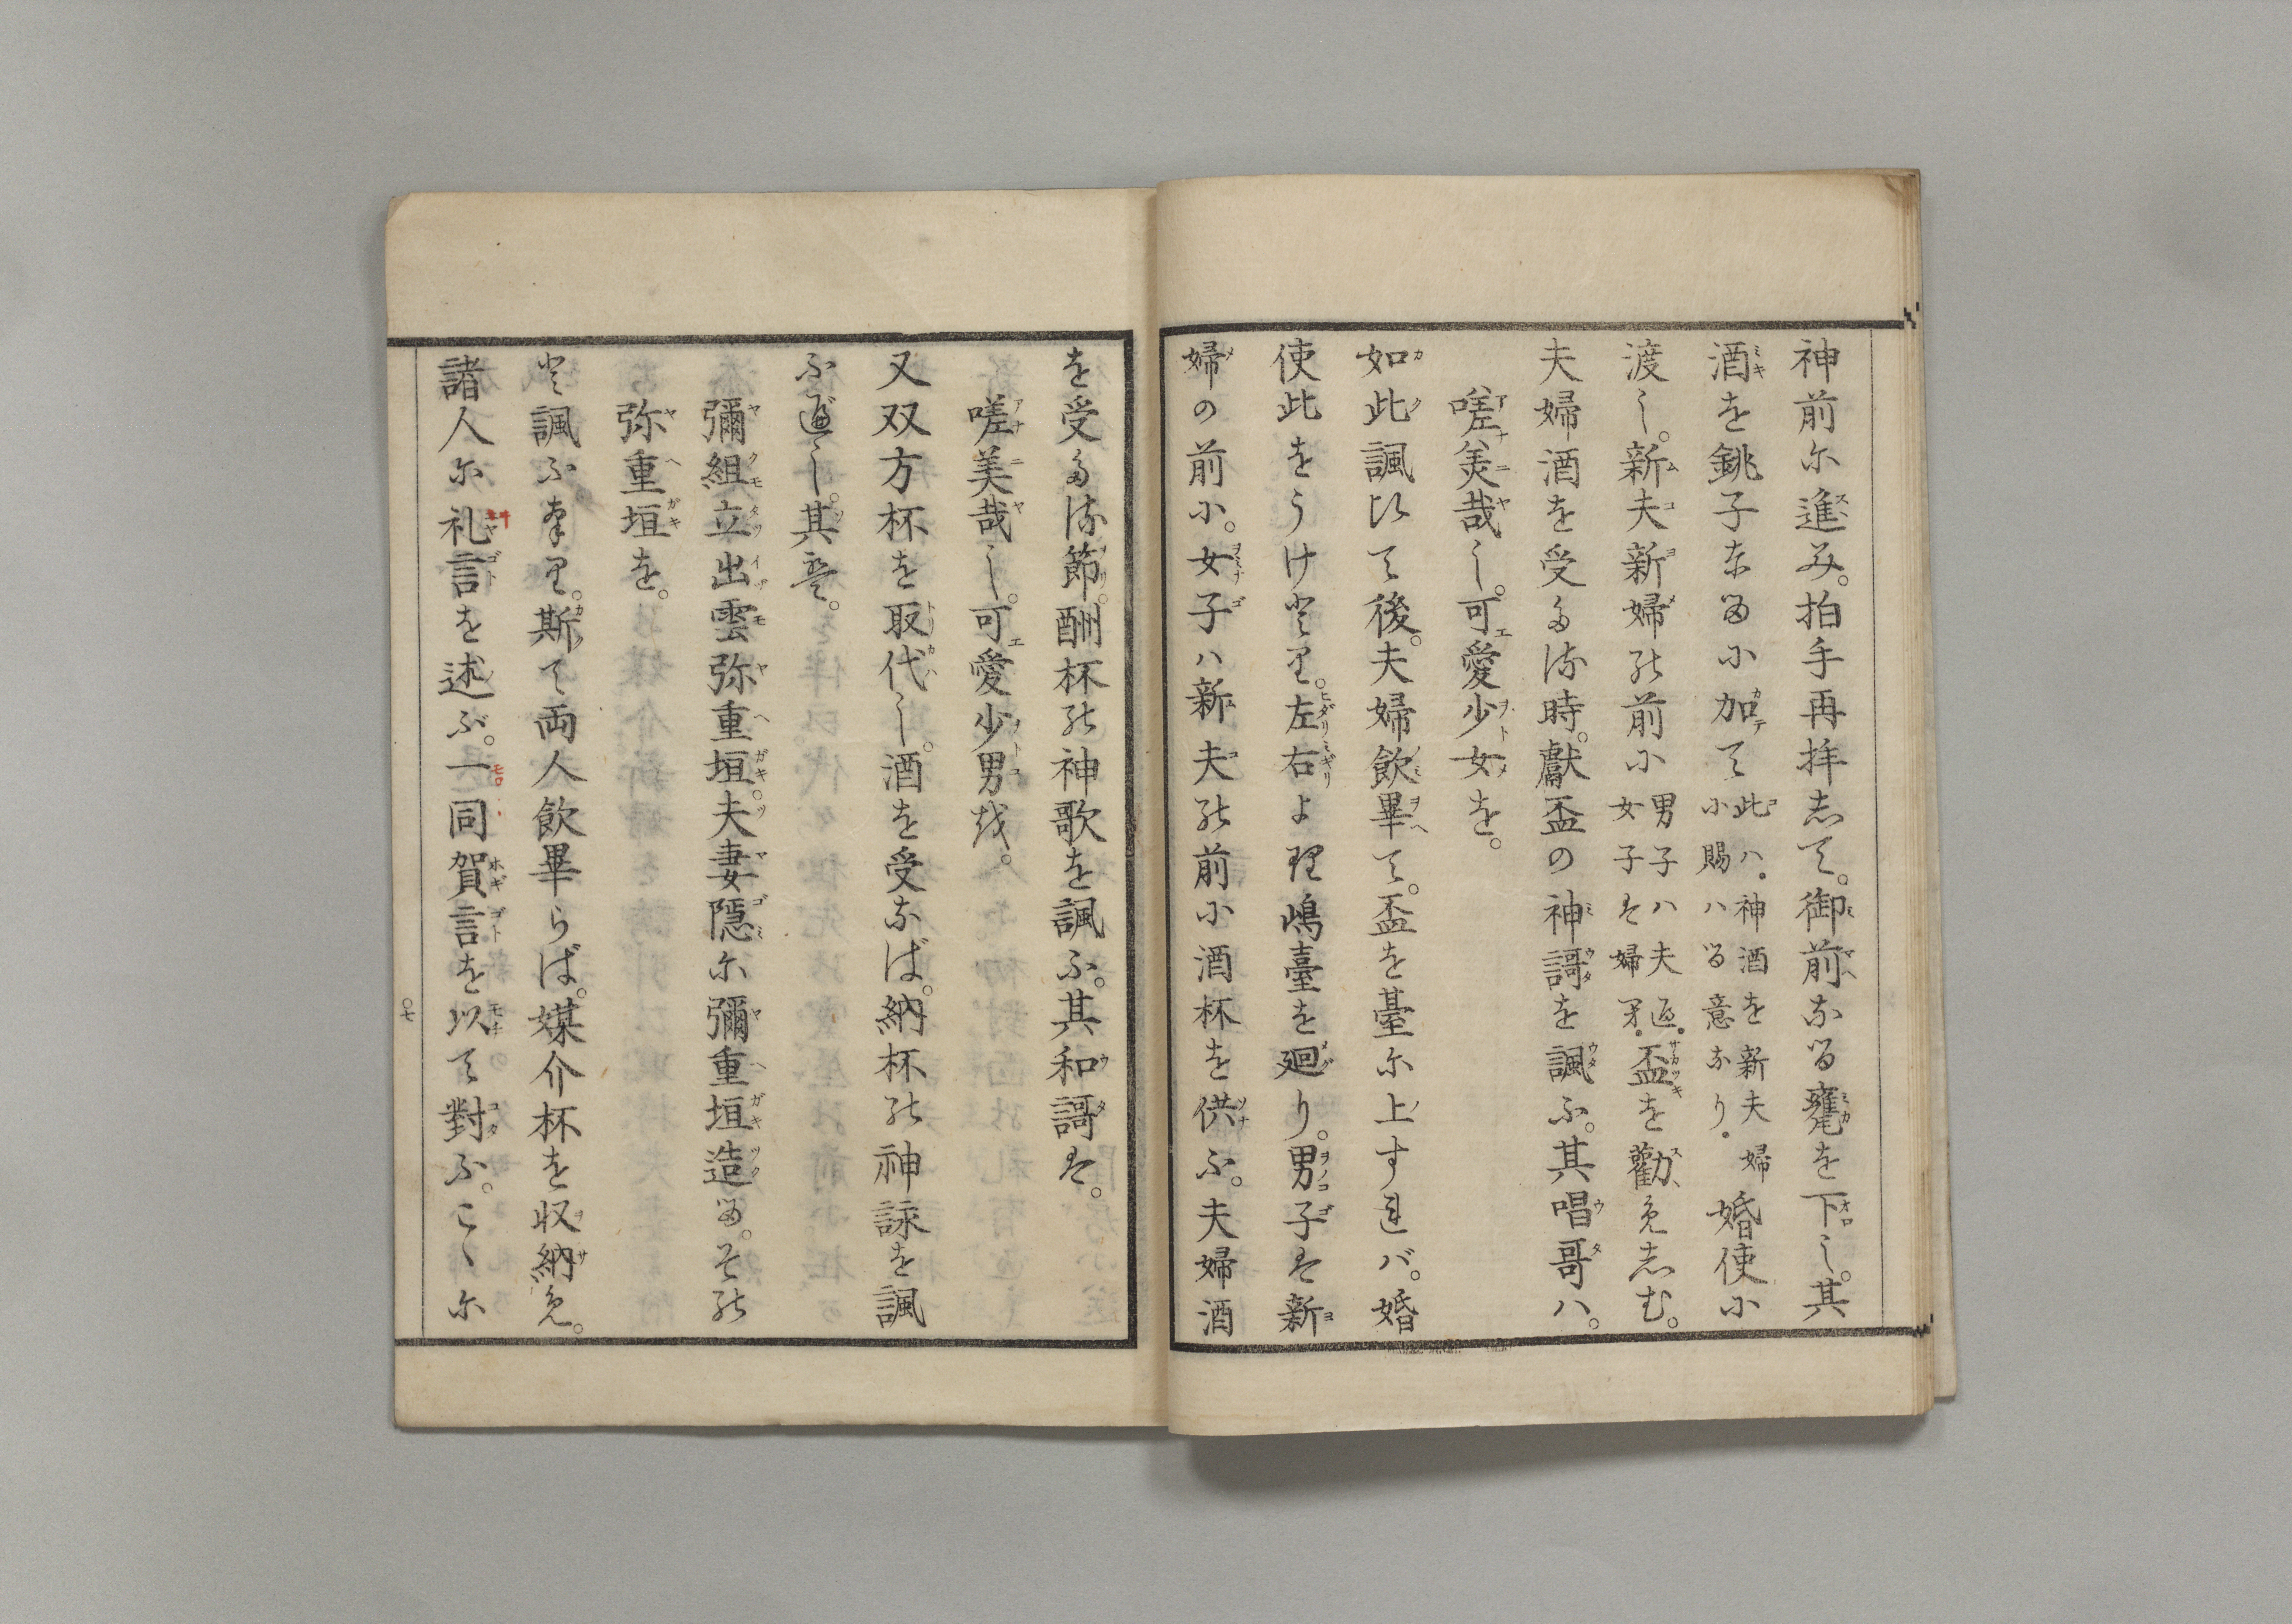 神前尓進み。拍手再拝志て。御前なる甕を下し。其
酒を銚子なるに加て此ハ。神酒を新夫婦に賜ハる意なり。婚使に
渡し。新夫新婦の前に男子ハ夫邊。女子は婦牙。盃を勸免志む。
夫婦酒を受る時。獻盃の神謌を諷ふ。其唱哥ハ。
嗟美哉し。可愛少女を。
如此諷ひて後。夫婦飲畢て。盃を臺尓上すれバ。婚
使此をうけとり。左右より嶋臺を廻り。男子は新
婦の前に。女子ハ新夫の前に酒杯を供ふ。夫婦酒
を受る節。酬杯の神歌を諷ふ。其和謌は。
嗟美哉し。可愛少男を。
又双方杯を取代し。酒を受なば。納杯の神詠を諷
ふ遍し。其意。
彌組立出雲弥重垣。夫妻隠尓彌重垣造る。その
弥重垣を。
と諷ふなり。斯て両人飲畢らば。媒介杯を収納免。
諸人尓礼言を述ぶ。一同賀言を以て對ふ。こゝ尓
〇七